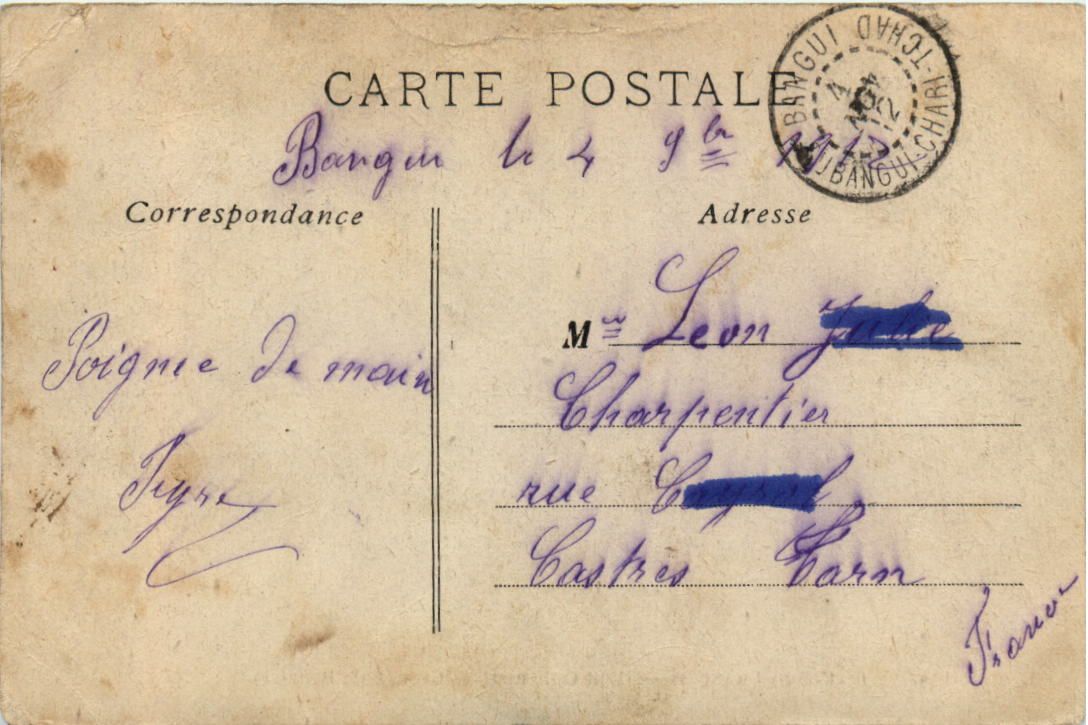 CARTE POSTALE
BANGUI
OUBANGUI-CHARI-TCHAD
4
NOV
12
Bangui le 4 9bre 1912
Correspondance
Adresse
Mr Leon
Charpentier
rue
Castres Tarn
France
Poignée de main